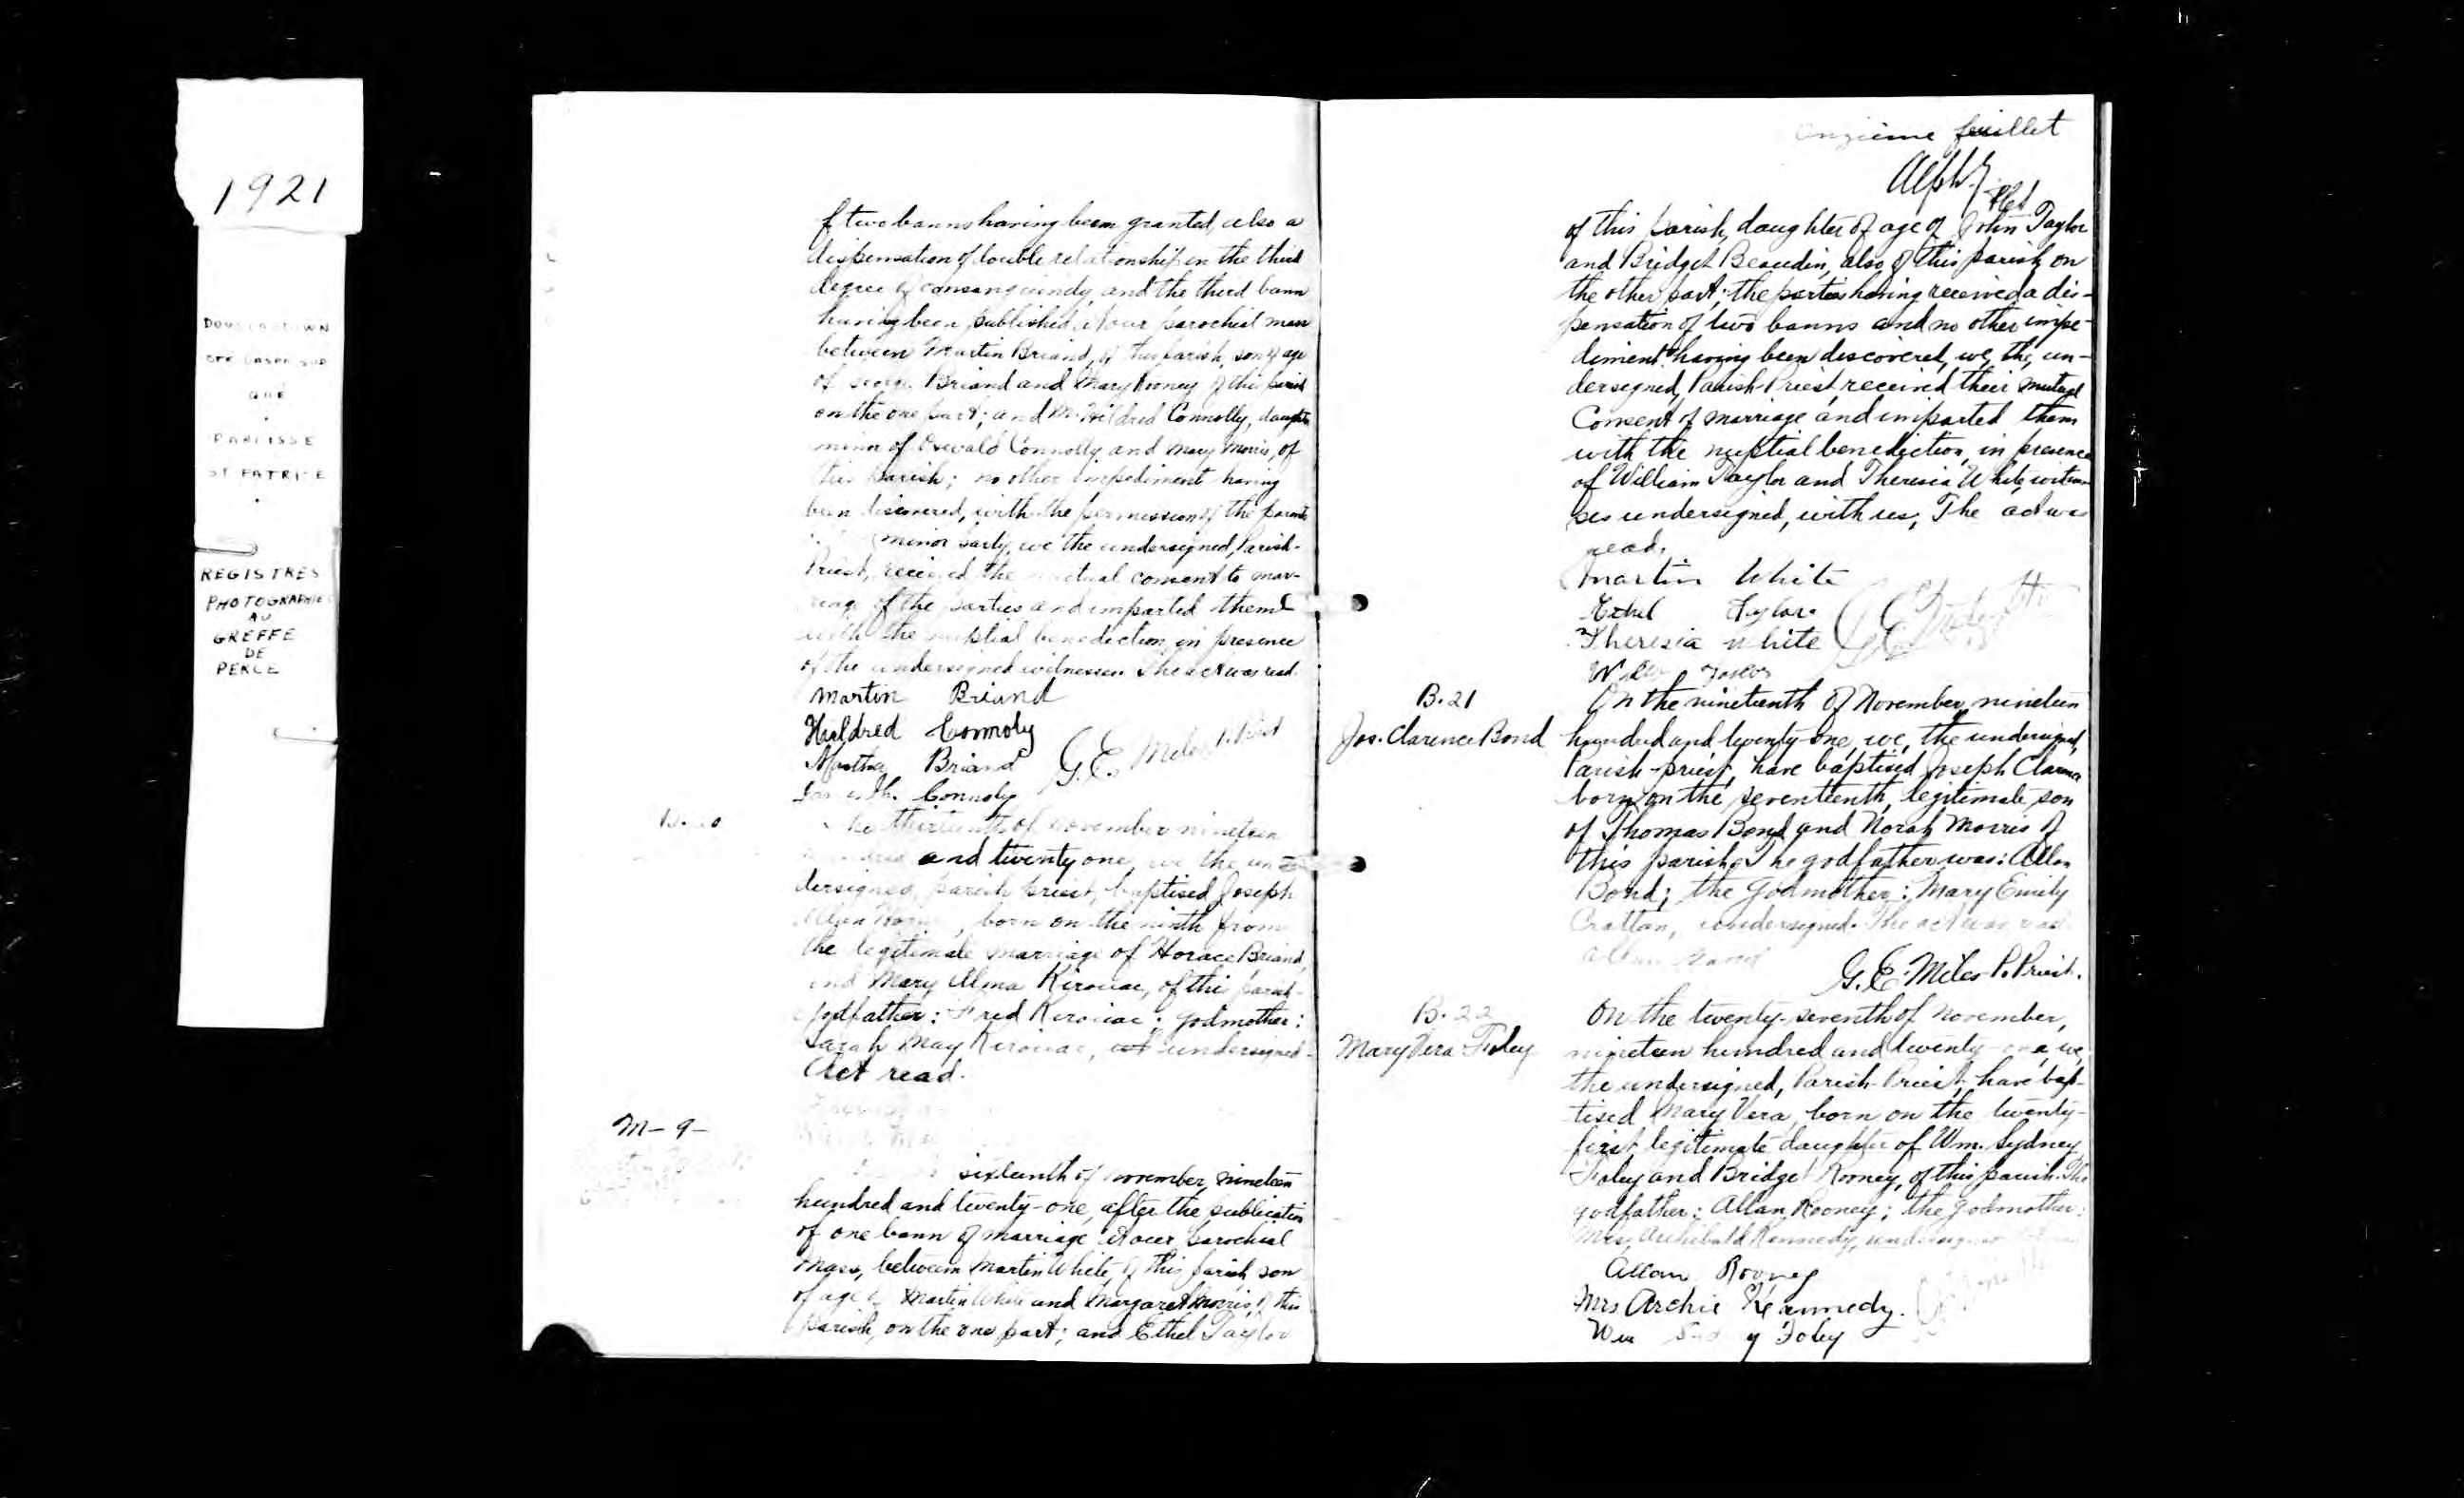 1921
DOUGLASTOWN
QUE
PAROISSE
ST PATRICE
REGISTRES
PHOTOGRAPHIES
AU
GREFFE
DE
PERCE
f two banns having been granted, also a
dispensation of double relationship in the third
degree of consanguinity, and the third bann
having been published at our parochial mass
between Martin Briand, of this parish, son of age
of George Briand and Mary Rooney of this parish
on the one part; and M. Hildred Connolly, daughter
minor of Oswald Connolly and Mary Morris, of
this parish; no other impediment having
been discovered, with the permission of the parents
minor party, we the undersigned, Parish-
Priest, received the mutual consent to mar-
riage of the parties and imparted them
with the nuptial benediction, in presence
of the undersigned witnesses. The act was read.
Martin Briand
Hildred Connoly
Martha Briand G. E. Miles P. Priest
Connoly
the thirteenth of november nineteen
and twenty one, we the un-
dersigned, parish priest, baptised Joseph
born on the ninth from
the legitimate marriage of Horace Briand,
and Mary Alma Kirouac, of this parish-
godfather: Fred Kirouac; godmother:
Sarah May Kirouac, undersigned-
Act read.
M-9-
sixteenth of november, nineteen
hundred and twenty-one, after the publication
of one bann of marriage at our parochial
Mass, between Martin White, of this parish, son
of age of Martin White and Margaret Morris, of this
parish, on the one part; and Ethel Taylor
onzième feuillet
of this parish, daughter of age of John Taylor
and Bridget Beaudin, also of this parish, on
the other part; the parties having received a dis-
pensation of two banns and no other impe-
diment having been discovered, we, the, un-
dersigned, Parish-Priest, received their mutual
Consent of marriage and imparted them
with the nuptial benediction, in presence
of William Taylor and Theresia White, witnes-
ses undersigned, with us, The act was
read.
Martin White
Ethel Taylor
Theresia White
B.21
Jos. Clarence Bond
On the nineteenth of November, nineteen
hundred and twenty-one, we, the undersigned,
Parish-priest, have baptised Joseph Clarence
born on the seventeenth, legitimate son
of Thomas Bond and Norah Morris of
this parish. The godfather was: Allan
Bond; the Godmother: Mary Emily
undersigned. The act was read
G. E. Miles P. Priest.
B.22
Mary Vera Foley
On the twenty-seventh of November,
nineteen hundred and twenty-one, we,
the undersigned, Parish-Priest, have bap-
tised Mary Vera, born on the twenty-
first, legitimate daughter of Wm. Sydney
Foley and Bridget Rooney, of this parish. The
godfather: Allan Rooney; the godmother:
Mrs. Archibald Kennedy,
Allan Rooney
Mrs Archie Kennedy.
Wm Foley